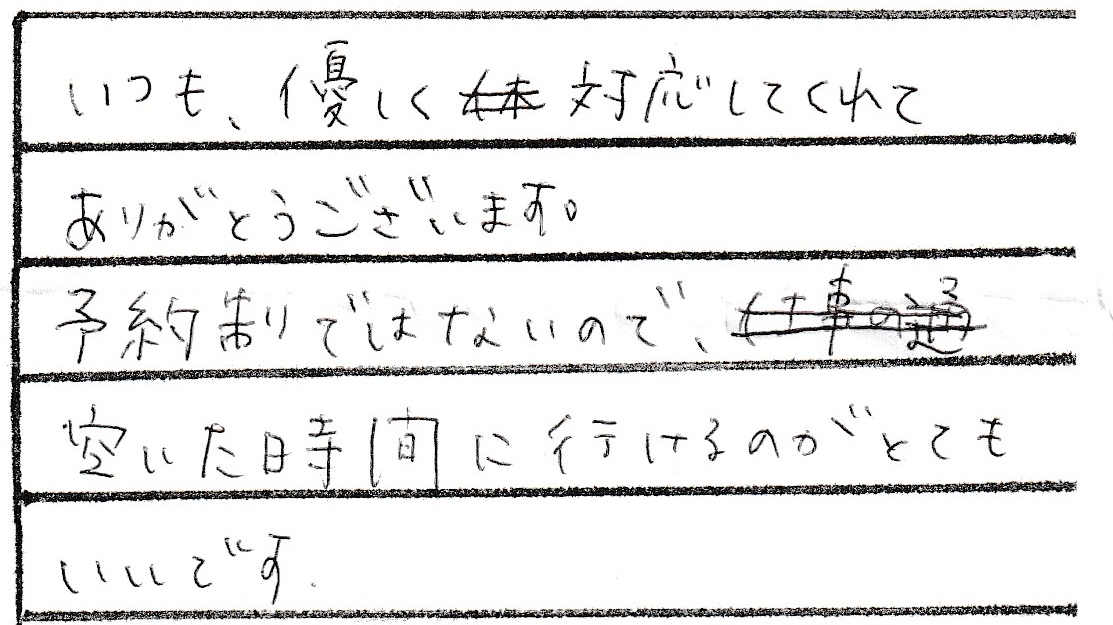 いつも、優しく対応してくれて
ありがとうございます。
予約制ではないので、
空いた時間に行けるのがとても
いいです.